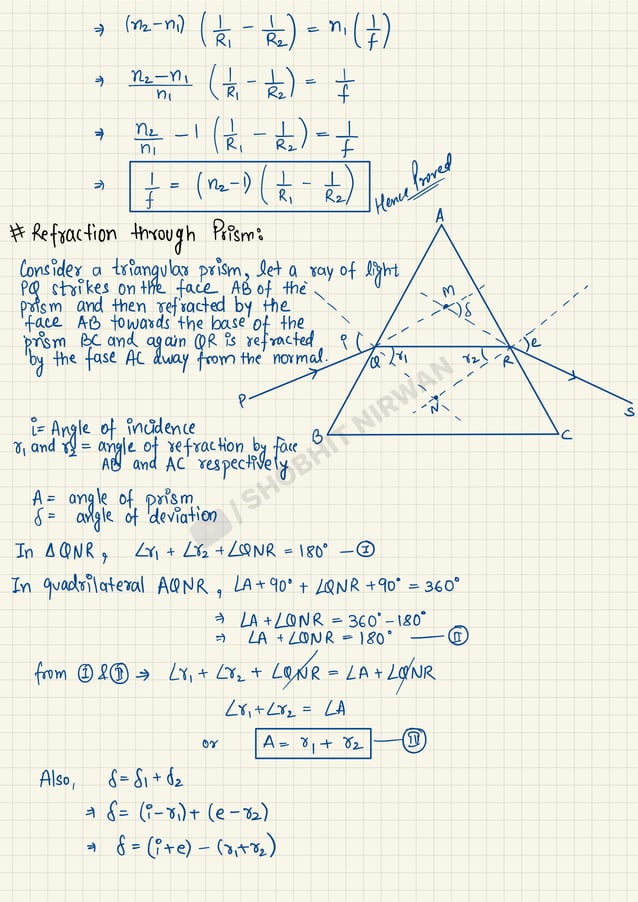 ⇒ (n₂-n₁) (1/R₁ - 1/R₂) = n₁ (1/f)
⇒ n₂-n₁/n₁ (1/R₁ - 1/R₂) = 1/f
⇒ n₂/n₁ -1 (1/R₁ - 1/R₂) = 1/f
⇒ 1/f = (n₂-1) (1/R₁ - 1/R₂)
Hence Proved
# Refraction through Prism:
Consider a triangular prism, let a ray of light
PQ strikes on the face AB of the
prism and then refracted by the
face AB towards the base of the
prism BC and again QR is refracted
by the fase AC away from the normal.
A
M
δ
i
Q
r₁
r₂
R
e
P
N
S
B
C
i = Angle of incidence
r₁ and r₂ = angle of refraction by face
AB and AC respectively
A = angle of prism
δ = angle of deviation
In Δ QNR, ∠r₁ + ∠r₂ + ∠QNR = 180° — Ⓘ
In quadrilateral AQNR, ∠A + 90° + ∠QNR + 90° = 360°
⇒ ∠A + ∠QNR = 360° - 180°
⇒ ∠A + ∠QNR = 180° — Ⅱ
from Ⓘ & Ⅱ ⇒ ∠r₁ + ∠r₂ + ∠QNR = ∠A + ∠QNR
∠r₁ + ∠r₂ = ∠A
or A = r₁ + r₂ —
Also, δ = δ₁ + δ₂
⇒ δ = (i-r₁) + (e-r₂)
⇒ δ = (i+e) - (r₁+r₂)
/ SHOBHIT NIRWAN